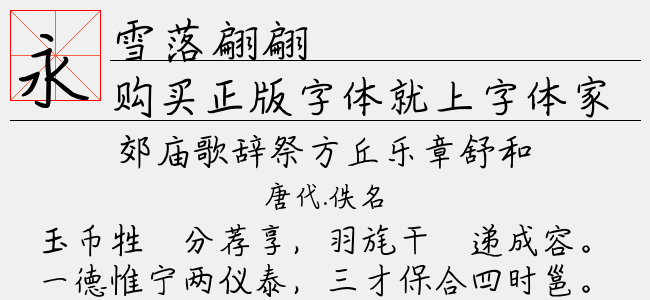 永
雪落翩翩
购买正版字体就上字体家
郊庙歌辞祭方丘乐章舒和
唐代.佚名
玉币牲　分荐享，羽旄干　递成容。
一德惟宁两仪泰，三才保合四时邕。